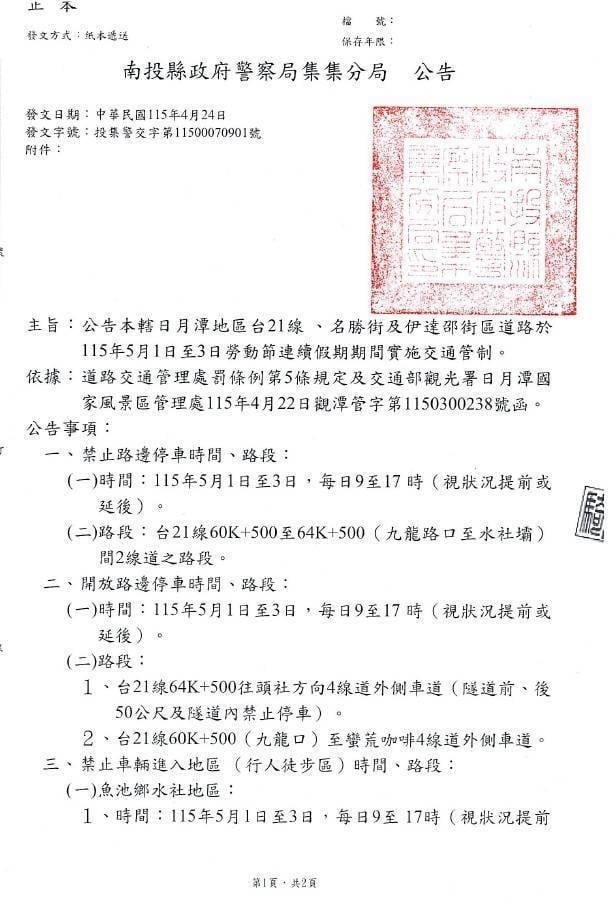 正本
檔　號：
保存年限：
發文方式：紙本遞送
南投縣政府警察局集集分局　公告
發文日期：中華民國115年4月24日
發文字號：投集警交字第11500070901號
附件：
南投縣政府警察局集集分局印
主旨：公告本轄日月潭地區台21線、名勝街及伊達邵街區道路於
115年5月1日至3日勞動節連續假期期間實施交通管制。
依據：道路交通管理處罰條例第5條規定及交通部觀光署日月潭國
家風景區管理處115年4月22日觀潭管字第1150300238號函。
公告事項：
一、禁止路邊停車時間、路段：
(一)時間：115年5月1日至3日，每日9至17 時（視狀況提前或
延後）。
(二)路段：台21線60K+500至64K+500（九龍路口至水社壩）
間2線道之路段。
二、開放路邊停車時間、路段：
(一)時間：115年5月1日至3日，每日9至17 時（視狀況提前或
延後）。
(二)路段：
1、台21線64K+500往頭社方向4線道外側車道（隧道前、後
50公尺及隧道內禁止停車）。
2、台21線60K+500（九龍口）至蠻荒咖啡4線道外側車道。
三、禁止車輛進入地區（行人徒步區）時間、路段：
(一)魚池鄉水社地區：
1、時間：115年5月1日至3日，每日9至 17時（視狀況提前
第1頁，共2頁